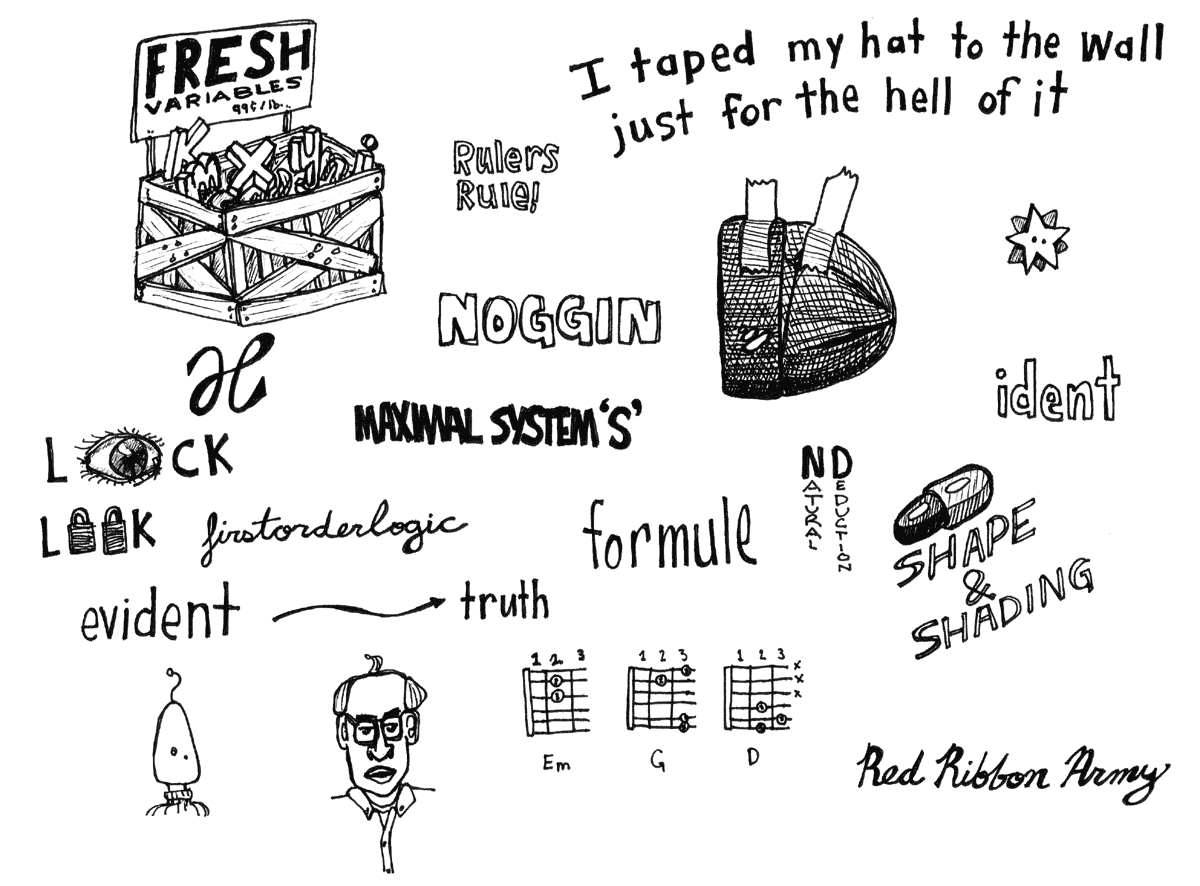 FRESH
VARIABLES
99¢/lb.
K M X Y
I taped my hat to the wall
just for the hell of it
Rulers
Rule!
NOGGIN
ident
MAXIMAL SYSTEM 'S'
L CK
L K
firstorderlogic
formule
ND
NATURAL
DEDUCTION
SHAPE
&
SHADING
evident → truth
1 2 3
Em
1 2 3
G
1 2 3
x
x
x
D
Red Ribbon Army